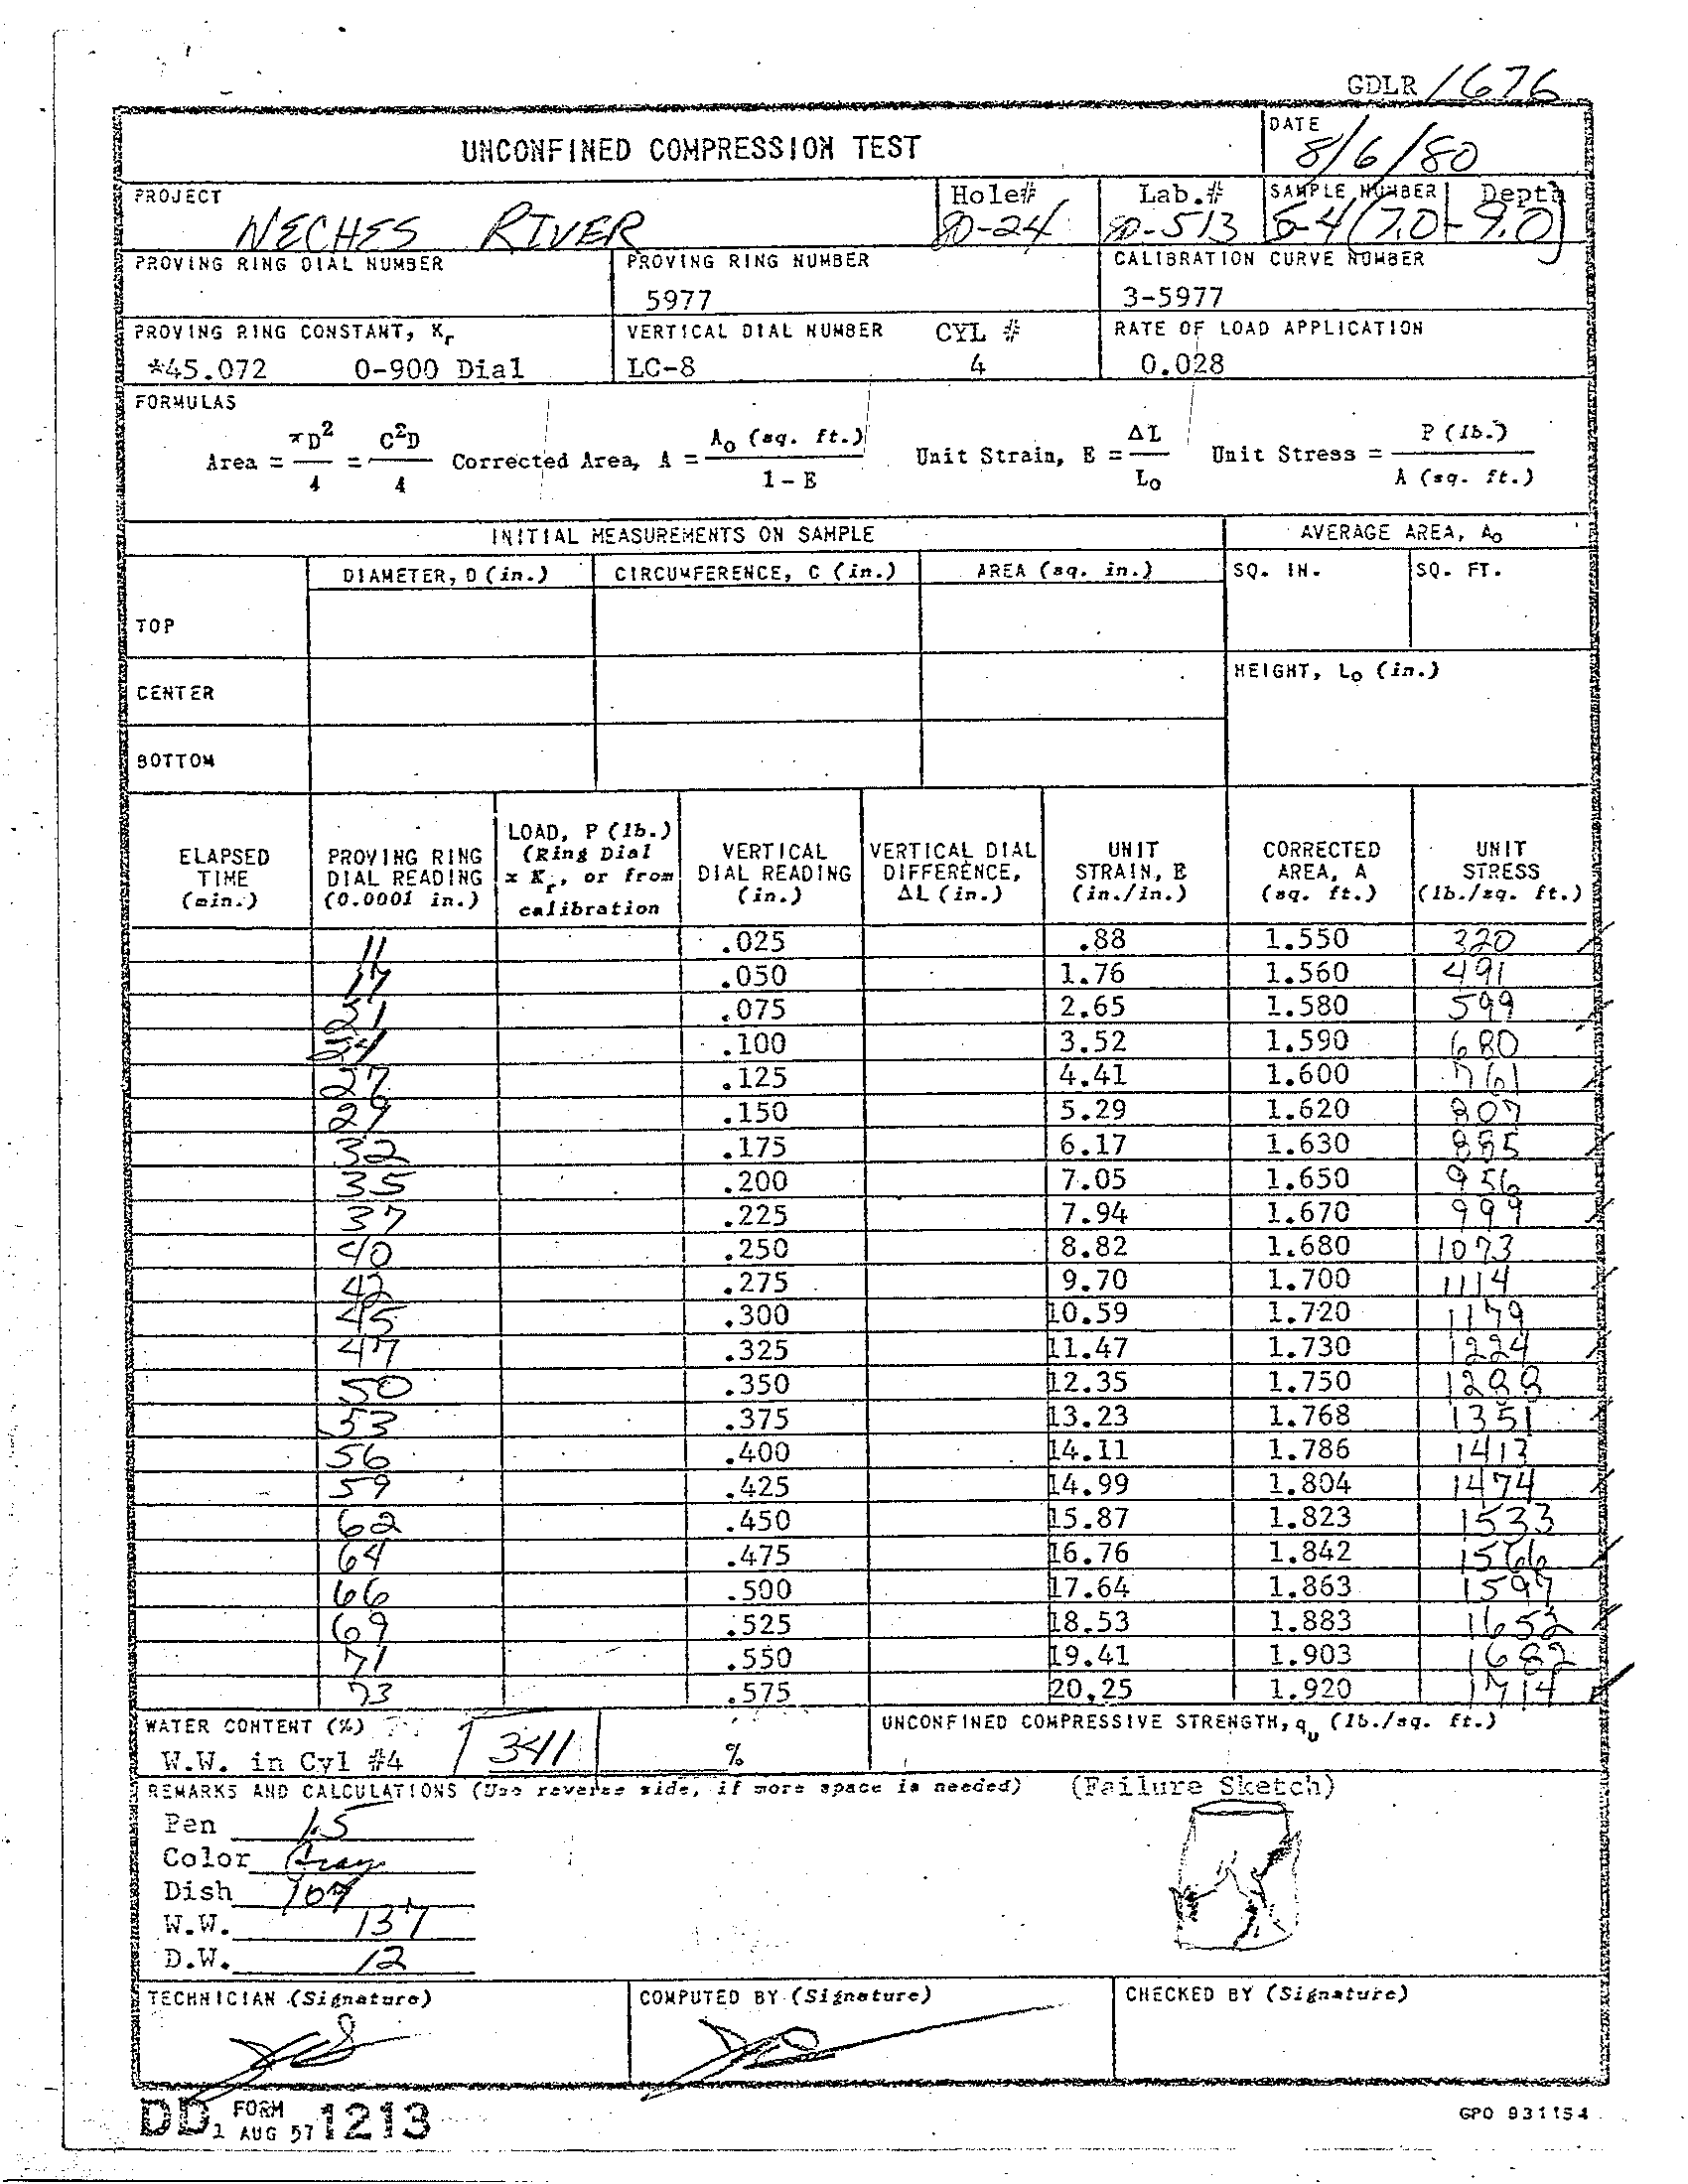 GDLR 1676
UNCONFINED COMPRESSION TEST
DATE
8/6/80
PROJECT
NECHES RIVER
Hole#
80-24
Lab.#
80-513
SAMPLE NUMBER Depth
S-4 (7.0-9.0)
PROVING RING DIAL NUMBER
PROVING RING NUMBER
5977
CALIBRATION CURVE NUMBER
3-5977
PROVING RING CONSTANT, Kr
*45.072 0-900 Dial
VERTICAL DIAL NUMBER CYL #
LC-8 4
RATE OF LOAD APPLICATION
0.028
FORMULAS
Area = πD²/4 = C²D/4 Corrected Area, A = A₀ (sq. ft.)/1-E Unit Strain, E = ΔL/L₀ Unit Stress = P (lb.)/A (sq. ft.)
INITIAL MEASUREMENTS ON SAMPLE
AVERAGE AREA, A₀
DIAMETER, D (in.) CIRCUMFERENCE, C (in.) AREA (sq. in.) SQ. IN. SQ. FT.
TOP
CENTER
HEIGHT, L₀ (in.)
BOTTOM
ELAPSED TIME (min.)
PROVING RING DIAL READING (0.0001 in.)
LOAD, P (lb.) (Ring Dial x Kr, or from calibration
VERTICAL DIAL READING (in.)
VERTICAL DIAL DIFFERENCE, ΔL (in.)
UNIT STRAIN, E (in./in.)
CORRECTED AREA, A (sq. ft.)
UNIT STRESS (lb./sq. ft.)
11 .025 .88 1.550 320
17 .050 1.76 1.560 491
21 .075 2.65 1.580 599
24 .100 3.52 1.590 680
27 .125 4.41 1.600 761
29 .150 5.29 1.620 807
32 .175 6.17 1.630 885
35 .200 7.05 1.650 956
37 .225 7.94 1.670 999
40 .250 8.82 1.680 1073
42 .275 9.70 1.700 1114
45 .300 10.59 1.720 1179
47 .325 11.47 1.730 1224
50 .350 12.35 1.750 1288
53 .375 13.23 1.768 1351
56 .400 14.11 1.786 1413
59 .425 14.99 1.804 1474
62 .450 15.87 1.823 1533
64 .475 16.76 1.842 1566
66 .500 17.64 1.863 1597
69 .525 18.53 1.883 1652
71 .550 19.41 1.903 1682
73 .575 20.25 1.920 1714
WATER CONTENT (%)
W.W. in Cyl #4 341 %
UNCONFINED COMPRESSIVE STRENGTH, qu (lb./sq. ft.)
REMARKS AND CALCULATIONS (Use reverse side, if more space is needed) (Failure Sketch)
Pen 1.5
Color Gray
Dish 109
W.W. 137
D.W. 12
TECHNICIAN (Signature)
COMPUTED BY (Signature)
CHECKED BY (Signature)
DD FORM 1 AUG 57 1213
GPO 931154